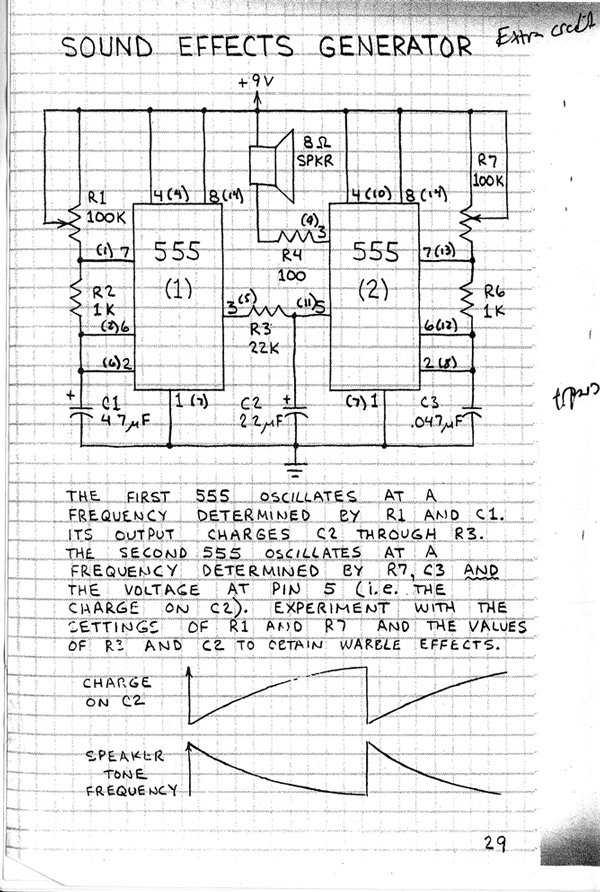 SOUND EFFECTS GENERATOR
Extra credit
+9V
8Ω
SPKR
R7
100K
R1
100K
4(4)
8(14)
4(10)
8(14)
555
(1)
555
(2)
(1) 7
(9) 3
R4
100
7(13)
R2
1K
R6
1K
(2)6
3(5)
(11)5
6(12)
R3
22K
(6)2
2(8)
+
C1
4.7µF
1 (7)
C2
22µF
+
(7) 1
C3
.047µF
THE FIRST 555 OSCILLATES AT A
FREQUENCY DETERMINED BY R1 AND C1.
ITS OUTPUT CHARGES C2 THROUGH R3.
THE SECOND 555 OSCILLATES AT A
FREQUENCY DETERMINED BY R7, C3 AND
THE VOLTAGE AT PIN 5 (i.e. THE
CHARGE ON C2). EXPERIMENT WITH THE
SETTINGS OF R1 AND R7 AND THE VALUES
OF R3 AND C2 TO OBTAIN WARBLE EFFECTS.
CHARGE
ON C2
SPEAKER
TONE
FREQUENCY
29